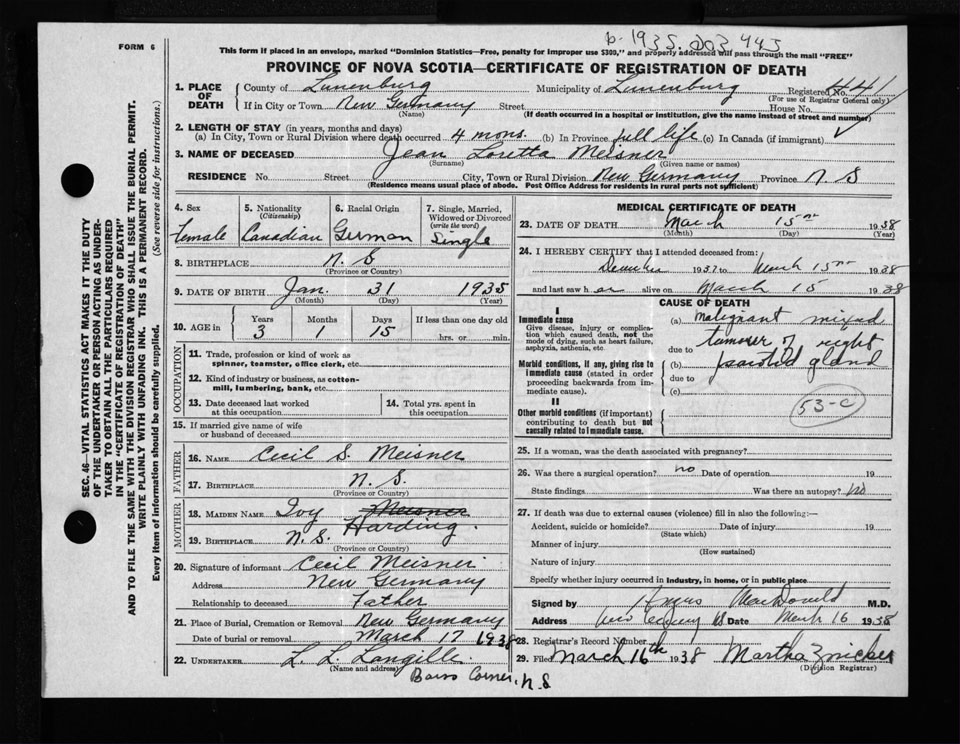 b-1935.203 443
FORM 6
This form if placed in an envelope, marked "Dominion Statistics—Free, penalty for improper use $300," and properly addressed will pass through the mail "FREE"
PROVINCE OF NOVA SCOTIA—CERTIFICATE OF REGISTRATION OF DEATH
1. PLACE OF DEATH
County of Lunenburg Municipality of Lunenburg Registered No. 441
(For use of Registrar General only)
If in City or Town New Germany Street House No.
(Name) (If death occurred in a hospital or institution, give the name instead of street and number)
2. LENGTH OF STAY (in years, months and days)
(a) In City, Town or Rural Division where death occurred 4 mons. (b) In Province full life (c) In Canada (if immigrant)
3. NAME OF DECEASED Jean Loretta Meisner
(Surname) (Given name or names)
RESIDENCE No. Street City, Town or Rural Division New Germany Province N S
(Residence means usual place of abode. Post Office Address for residents in rural parts not sufficient)
4. Sex female
5. Nationality (Citizenship) Canadian
6. Racial Origin German
7. Single, Married, Widowed or Divorced (write the word) Single
8. BIRTHPLACE N. S
(Province or Country)
9. DATE OF BIRTH Jan. 31 1935
(Month) (Day) (Year)
10. AGE in Years Months Days If less than one day old
3 1 15 hrs. or min.
OCCUPATION
11. Trade, profession or kind of work as spinner, teamster, office clerk, etc.
12. Kind of industry or business, as cotton-mill, lumbering, bank, etc.
13. Date deceased last worked at this occupation
14. Total yrs. spent in this occupation
15. If married give name of wife or husband of deceased
FATHER
16. NAME Cecil S. Meisner
17. BIRTHPLACE N. S.
(Province or Country)
MOTHER
18. MAIDEN NAME Ivy Meisner Harding.
19. BIRTHPLACE N. S.
(Province or Country)
20. Signature of informant Cecil Meisner
Address New Germany
Relationship to deceased Father
21. Place of Burial, Cremation or Removal New Germany
Date of burial or removal March 17 1938
22. UNDERTAKER L. L. Langille
(Name and address)
Barss Corner, N.S
MEDICAL CERTIFICATE OF DEATH
23. DATE OF DEATH March 15 1938
(Month) (Day) (Year)
24. I HEREBY CERTIFY that I attended deceased from:
1937 to March 15 1938
and last saw h er alive on March 15 1938
CAUSE OF DEATH
I
Immediate cause
Give disease, injury or complication which caused death, not the mode of dying, such as heart failure, asphyxia, asthenia, etc.
Morbid conditions, if any, giving rise to immediate cause (stated in order proceeding backwards from immediate cause).
II
Other morbid conditions (if important) contributing to death but not causally related to immediate cause.
(a) Malignant mixed
due to tumor of right
(b) parotid gland
due to
(c)
53-c
25. If a woman, was the death associated with pregnancy?
26. Was there a surgical operation? no Date of operation 19
State findings Was there an autopsy? no
27. If death was due to external causes (violence) fill in also the following:
Accident, suicide or homicide? Date of injury 19
(State which)
Manner of injury
(How sustained)
Nature of injury
Specify whether injury occurred in industry, in home, or in public place
Signed by Angus MacDonald M.D.
Address New Germany NS Date March 16 1938
28. Registrar's Record Number
29. Filed March 16th 1938 Martha Zwicker
(Division Registrar)
SEC. 46—VITAL STATISTICS ACT MAKES IT THE DUTY
OF THE UNDERTAKER OR PERSON ACTING AS UNDER-
TAKER TO OBTAIN ALL THE PARTICULARS REQUIRED
IN THE "CERTIFICATE OF REGISTRATION OF DEATH"
AND TO FILE THE SAME WITH THE DIVISION REGISTRAR WHO SHALL ISSUE THE BURIAL PERMIT.
WRITE PLAINLY WITH UNFADING INK. THIS IS A PERMANENT RECORD.
Every item of information should be carefully supplied. (See reverse side for instructions.)